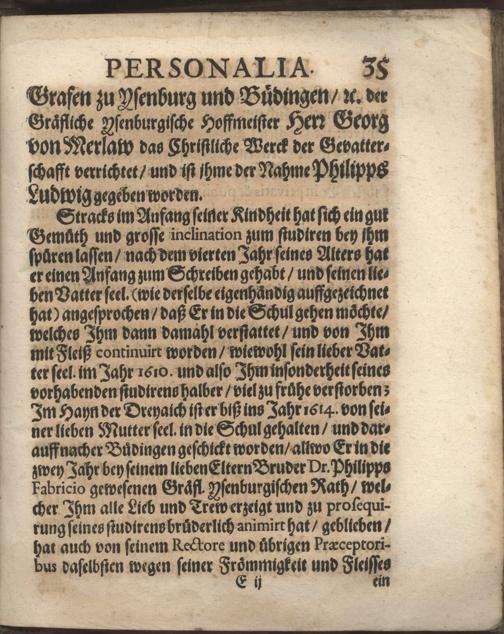 PERSONALIA. 35
Grafen zu Ysenburg und Büdingen / ꝛc. der
Gräfliche Ysenburgische Hoffmeister Herr Georg
von Merlaw das Christliche Werck der Gevatter-
schafft verrichtet / und ist ihme der Nahme Philipps
Ludwig gegeben worden.
Stracks im Anfang seiner Kindheit hat sich ein gut
Gemüth und grosse inclination zum studiren bey ihm
spüren lassen / nach dem vierten Jahr seines Alters hat
er einen Anfang zum Schreiben gehabt / und seinen lie-
ben Vatter seel. (wie derselbe eigenhändig auffgezeichnet
hat) angesprochen / daß Er in die Schul gehen möchte /
welches Ihm dann damahl verstattet / und von Ihm
mit Fleiß continuirt worden / wiewohl sein lieber Vat-
ter seel. im Jahr 1610. und also Ihm insonderheit seines
vorhabenden studirens halber / viel zu frühe verstorben;
Im Hayn der Dreyaich ist er biß ins Jahr 1614. von sei-
ner lieben Mutter seel. in die Schul gehalten / und dar-
auff nacher Büdingen geschickt worden / allwo Er in die
zwey Jahr bey seinem lieben Eltern Bruder Dr. Philipps
Fabricio gewesenen Gräfl. Ysenburgischen Rath / wel-
cher Ihm alle Lieb und Trew erzeigt und zu prosequi-
rung seines studirens brüderlich animirt hat / geblieben /
hat auch von seinem Rectore und übrigen Præceptori-
bus daselbsten wegen seiner Frömmigkeit und Fleisses
E ij ein